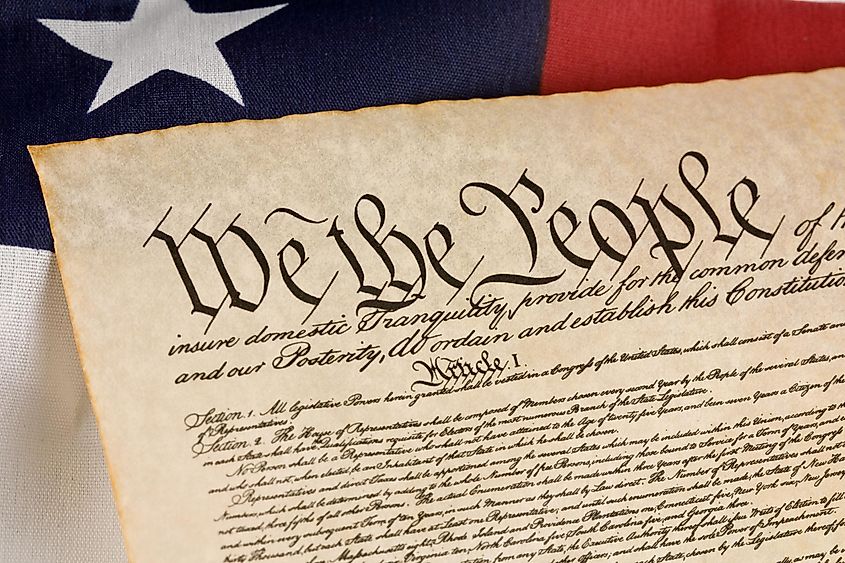 We the People of
insure domestic Tranquility, provide for the common defen
and our Posterity, do ordain and establish this Constitutio
Article. I.
Section. 1. All legislative Powers herein granted shall be vested in a Congress of the United States, which shall consist of a Senate and
of Representatives.
Section. 2. The House of Representatives shall be composed of Members chosen every second Year by the People of the several States, and
in each State shall have Qualifications requisite for Electors of the most numerous Branch of the State Legislature.
No Person shall be a Representative who shall not have attained to the Age of twenty five Years, and been seven Years a Citizen of the
and who shall not, when elected, be an Inhabitant of that State in which he shall be chosen.
Representatives and direct Taxes shall be apportioned among the several States which may be included within this Union, according to th
Numbers, which shall be determined by adding to the whole Number of free Persons, including those bound to Service for a Term of Years, and
not taxed, three fifths of all other Persons. The actual Enumeration shall be made within three Years after the first Meeting of the Congress
and within every subsequent Term of ten Years, in such Manner as they shall by Law direct. The Number of Representatives shall not
thirty Thousand, but each State shall have at Least one Representative; and until such enumeration shall be made, the State of New Ham
Massachusetts eight, Rhode Island and Providence Plantations one, Connecticut five, New York six, New Jersey
Virginia ten, North Carolina five, South Carolina five, and Georgia three.
from any State, the Executive Authority thereof shall issue Writs of Election to fill
other Officers; and shall have the sole Power of Impeachment.
each State, chosen by the Legislature thereof,